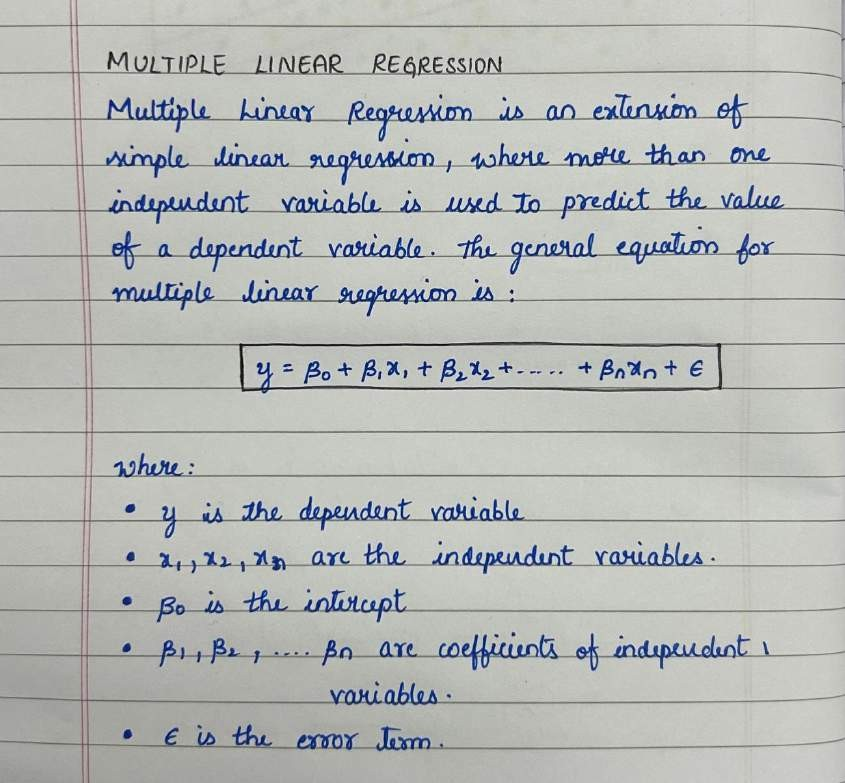 MULTIPLE LINEAR REGRESSION
Multiple Linear Regression is an extension of
simple linear regression, where more than one
independent variable is used to predict the value
of a dependent variable. The general equation for
multiple linear regression is :
y = β₀ + β₁x₁ + β₂x₂ + ..... + βₙxₙ + ϵ
where:
• y is the dependent variable
• x₁, x₂, xₙ are the independent variables.
• β₀ is the intercept
• β₁, β₂, .... βₙ are coefficients of independent
variables.
• ϵ is the error term.